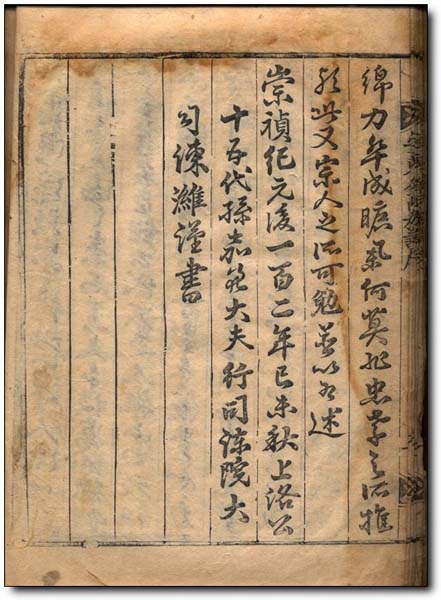 綿力卒成何莫非忠孝之所推
此又宗人之所可勉並以述
崇禎紀元後一百二年己未秋上洛公
十五代孫嘉善大夫行司諫院大
司諫濰謹書